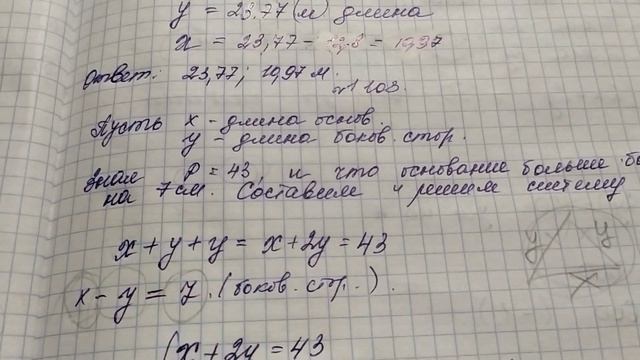 y = 23,77 (м) длина
x = 23,77 - = 10,97
Ответ. 23,77; 10,97 м.
№1 108.
Пусть x - длина основ.
y - длина боков. стор.
Знаем P = 43, и что основание больше бо
на 7 см. Составим и решим систему
x + y + y = x + 2y = 43
x - y = 7. (боков. стор.).
y y
x
x + 2y = 43